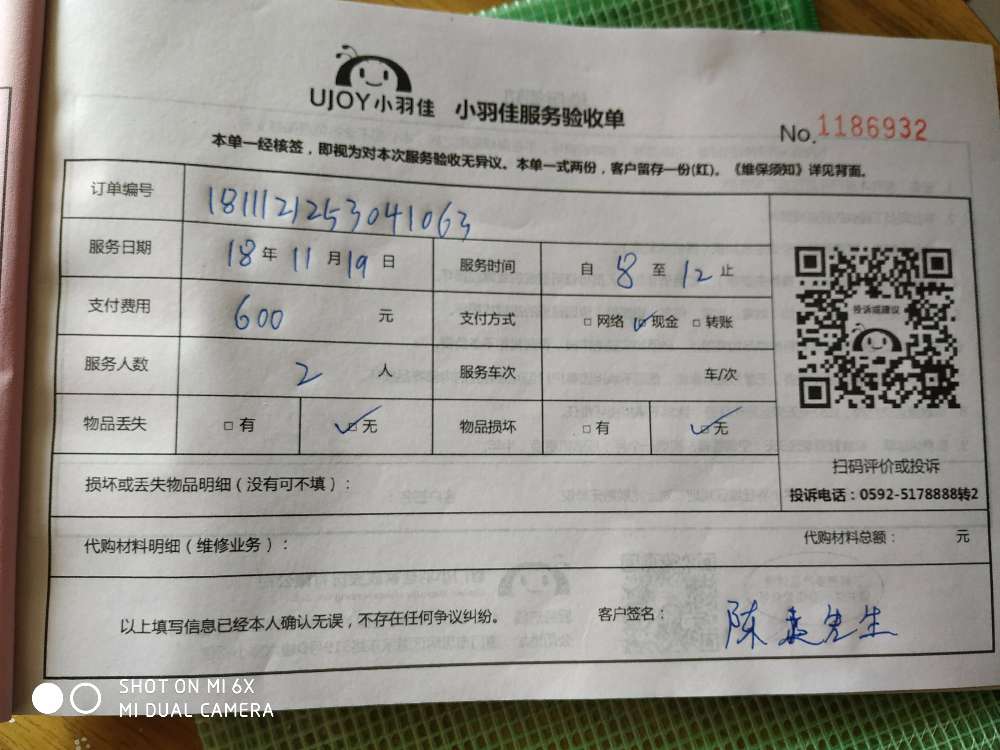 UJOY小羽佳 小羽佳服务验收单
No.1186932
本单一经核签，即视为对本次服务验收无异议。本单一式两份，客户留存一份(红)。《维保须知》详见背面。
订单编号 1811121253041063
服务日期 18年 11月19日 服务时间 自 8 至 12 止
支付费用 600 元 支付方式 □网络 ☑现金 □转账
投诉或建议
服务人数 2 人 服务车次 车/次
物品丢失 □有 ☑无 物品损坏 □有 ☑无
扫码评价或投诉
损坏或丢失物品明细（没有可不填）：
投诉电话：0592-5178888转2
代购材料明细（维修业务）： 代购材料总额： 元
以上填写信息已经本人确认无误，不存在任何争议纠纷。 客户签名： 陈 先生
SHOT ON MI 6X
MI DUAL CAMERA